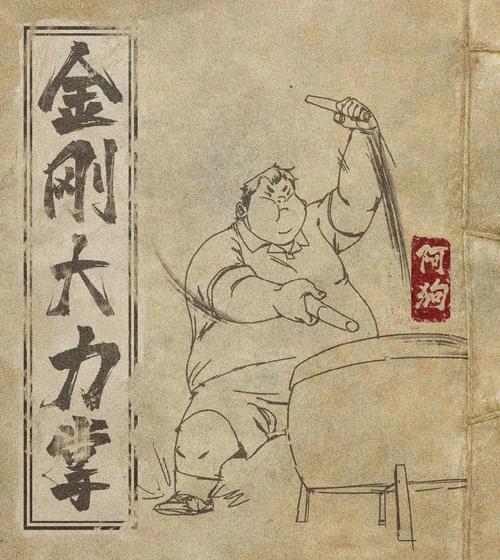 金刚大力掌
何狗